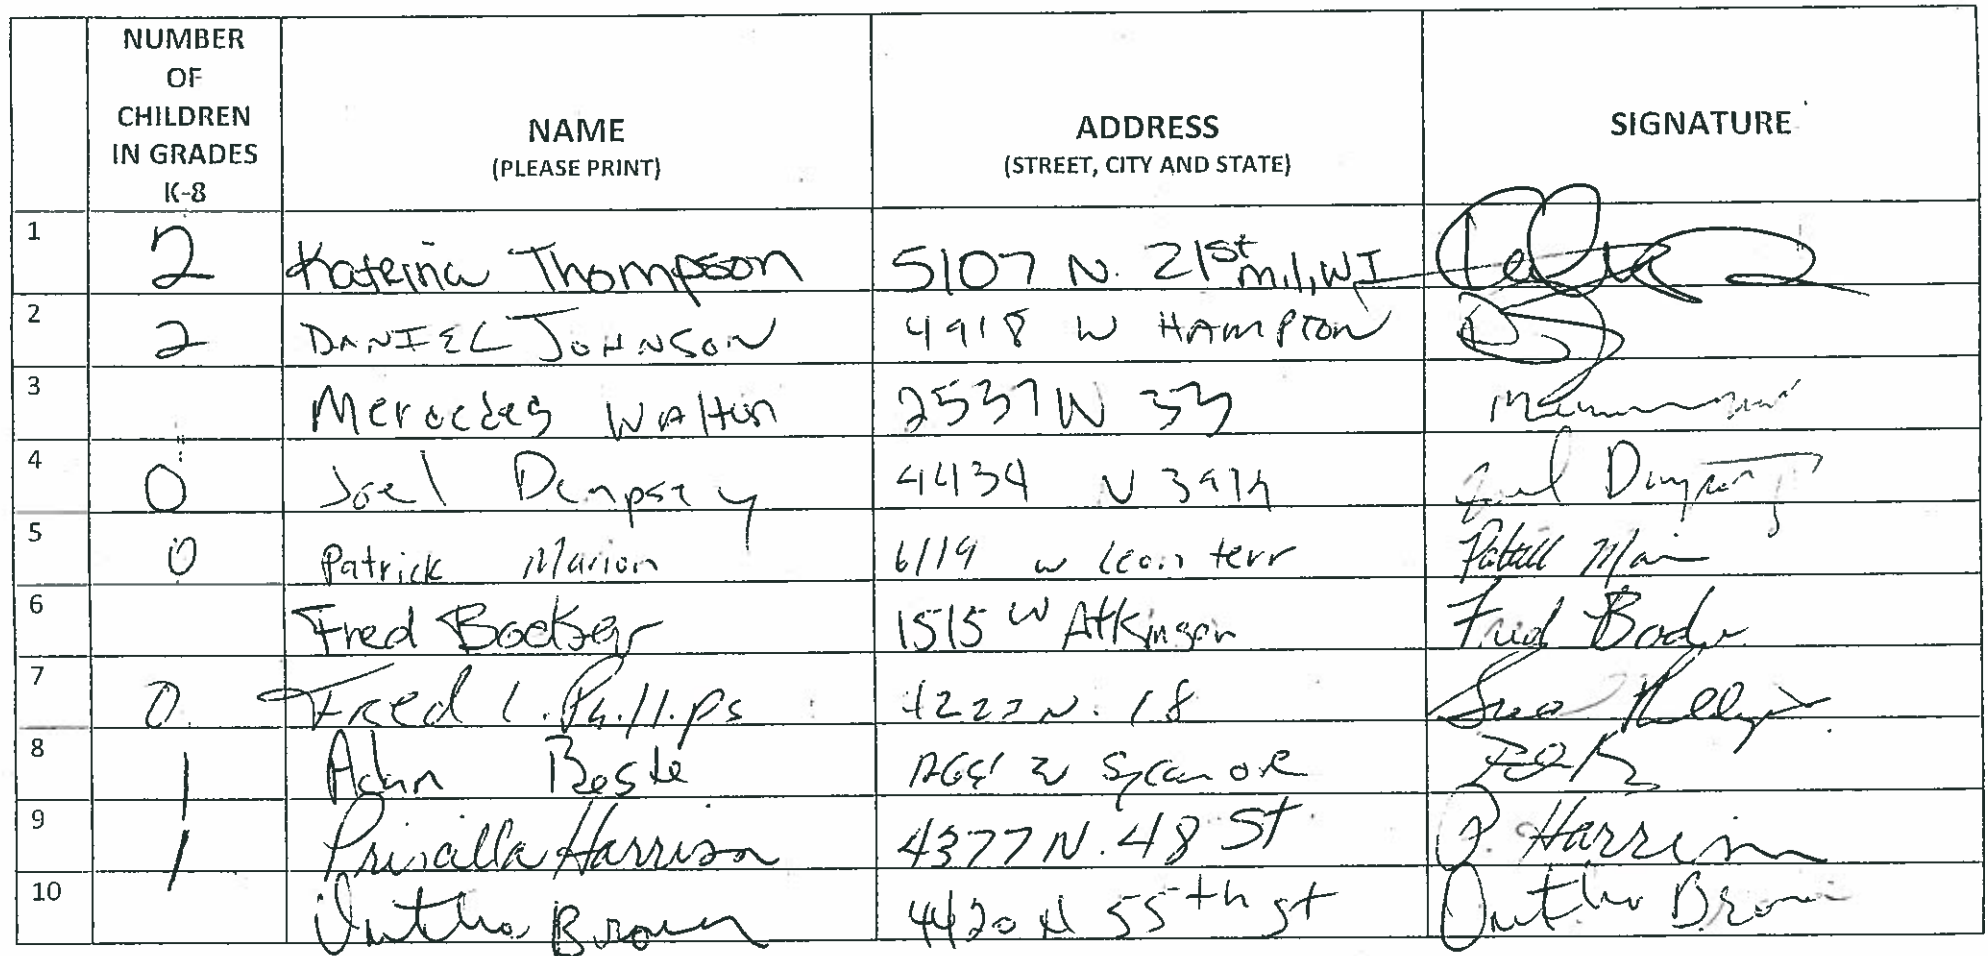 NUMBER
OF
CHILDREN
IN GRADES
K-8
NAME
(PLEASE PRINT)
ADDRESS
(STREET, CITY AND STATE)
SIGNATURE
1 2 Katrina Thompson 5107 N. 21st Mil, WI
2 2 DANIEL JOHNSON 4918 W HAMPTON
3 Mercedes Walton 2537 W 33
4 0 Joel Dempsey 4434 N 39th Joel Dempsey
5 0 Patrick Marion 6119 w Leon terr Patrick Marion
6 Fred Booker 1515 W Atkinson Fred Booker
7 0 Fred L. Phillips N. 18 Phillips
8 1
9 1 Priscilla Harrison 4377 N. 48 St P. Harrison
10 Brown 4420 N 55th st Brown